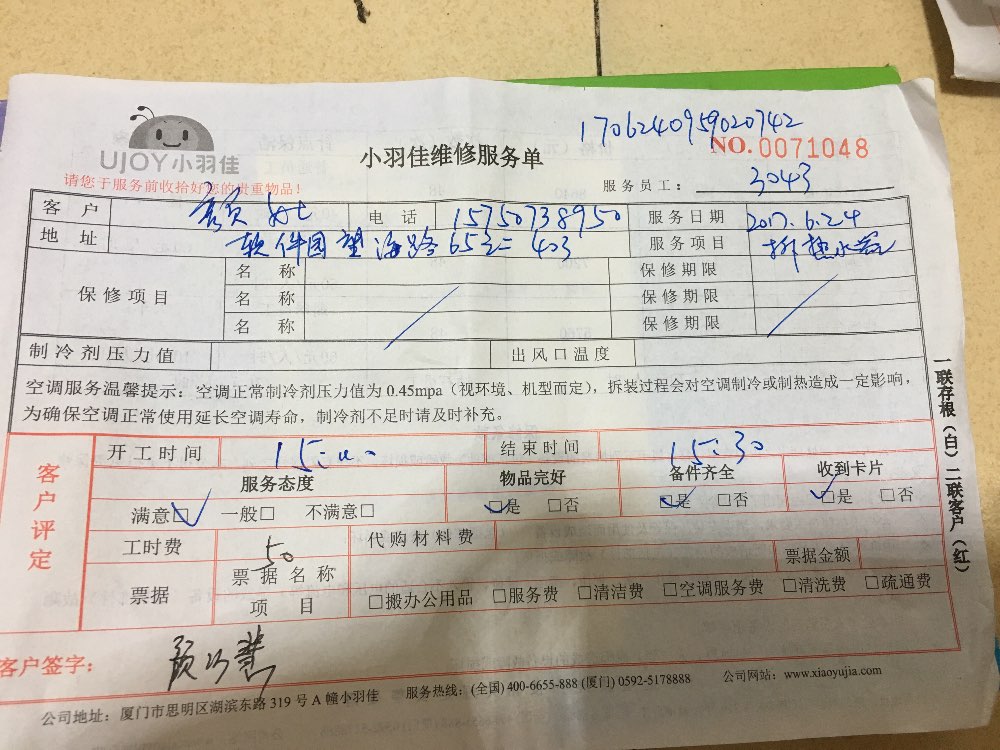 1706240959020742
UJOY小羽佳
小羽佳维修服务单
NO.0071048
请您于服务前收拾好您的贵重物品！
服务员工： 3043
客 户 电 话 15750738950 服务日期 2017.6.24
地 址 软件园望海路65之二 403 服务项目 拆热水器
保修项目 名 称 保修期限
名 称 保修期限
名 称 保修期限
制冷剂压力值 出风口温度
空调服务温馨提示：空调正常制冷剂压力值为 0.45mpa（视环境、机型而定），拆装过程会对空调制冷或制热造成一定影响，
为确保空调正常使用延长空调寿命，制冷剂不足时请及时补充。
客户评定
开工时间 15:00 结束时间 15:30
服务态度 物品完好 备件齐全 收到卡片
满意□ 一般□ 不满意□ □是 □否 □是 □否 □是 □否
工时费 50 代购材料费
票据 票据名称 票据金额
项 目 □搬办公用品 □服务费 □清洁费 □空调服务费 □清洗费 □疏通费
客户签字：
公司地址：厦门市思明区湖滨东路 319 号 A 幢小羽佳 服务热线：(全国) 400-6655-888 (厦门) 0592-5178888 公司网站：www.xiaoyujia.com
一联存根（白）二联客户（红）